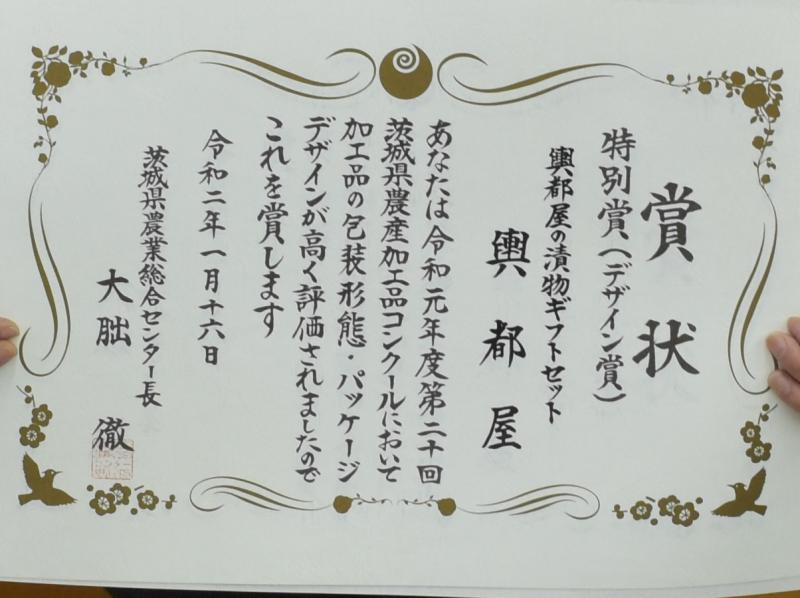 賞状
特別賞（デザイン賞）
輿都屋の漬物ギフトセット
輿都屋
あなたは令和元年度第二十回
茨城県農産加工品コンクールにおいて
加工品の包装形態・パッケージ
デザインが高く評価されましたので
これを賞します
令和二年一月十六日
茨城県農業総合センター長
大朏徹